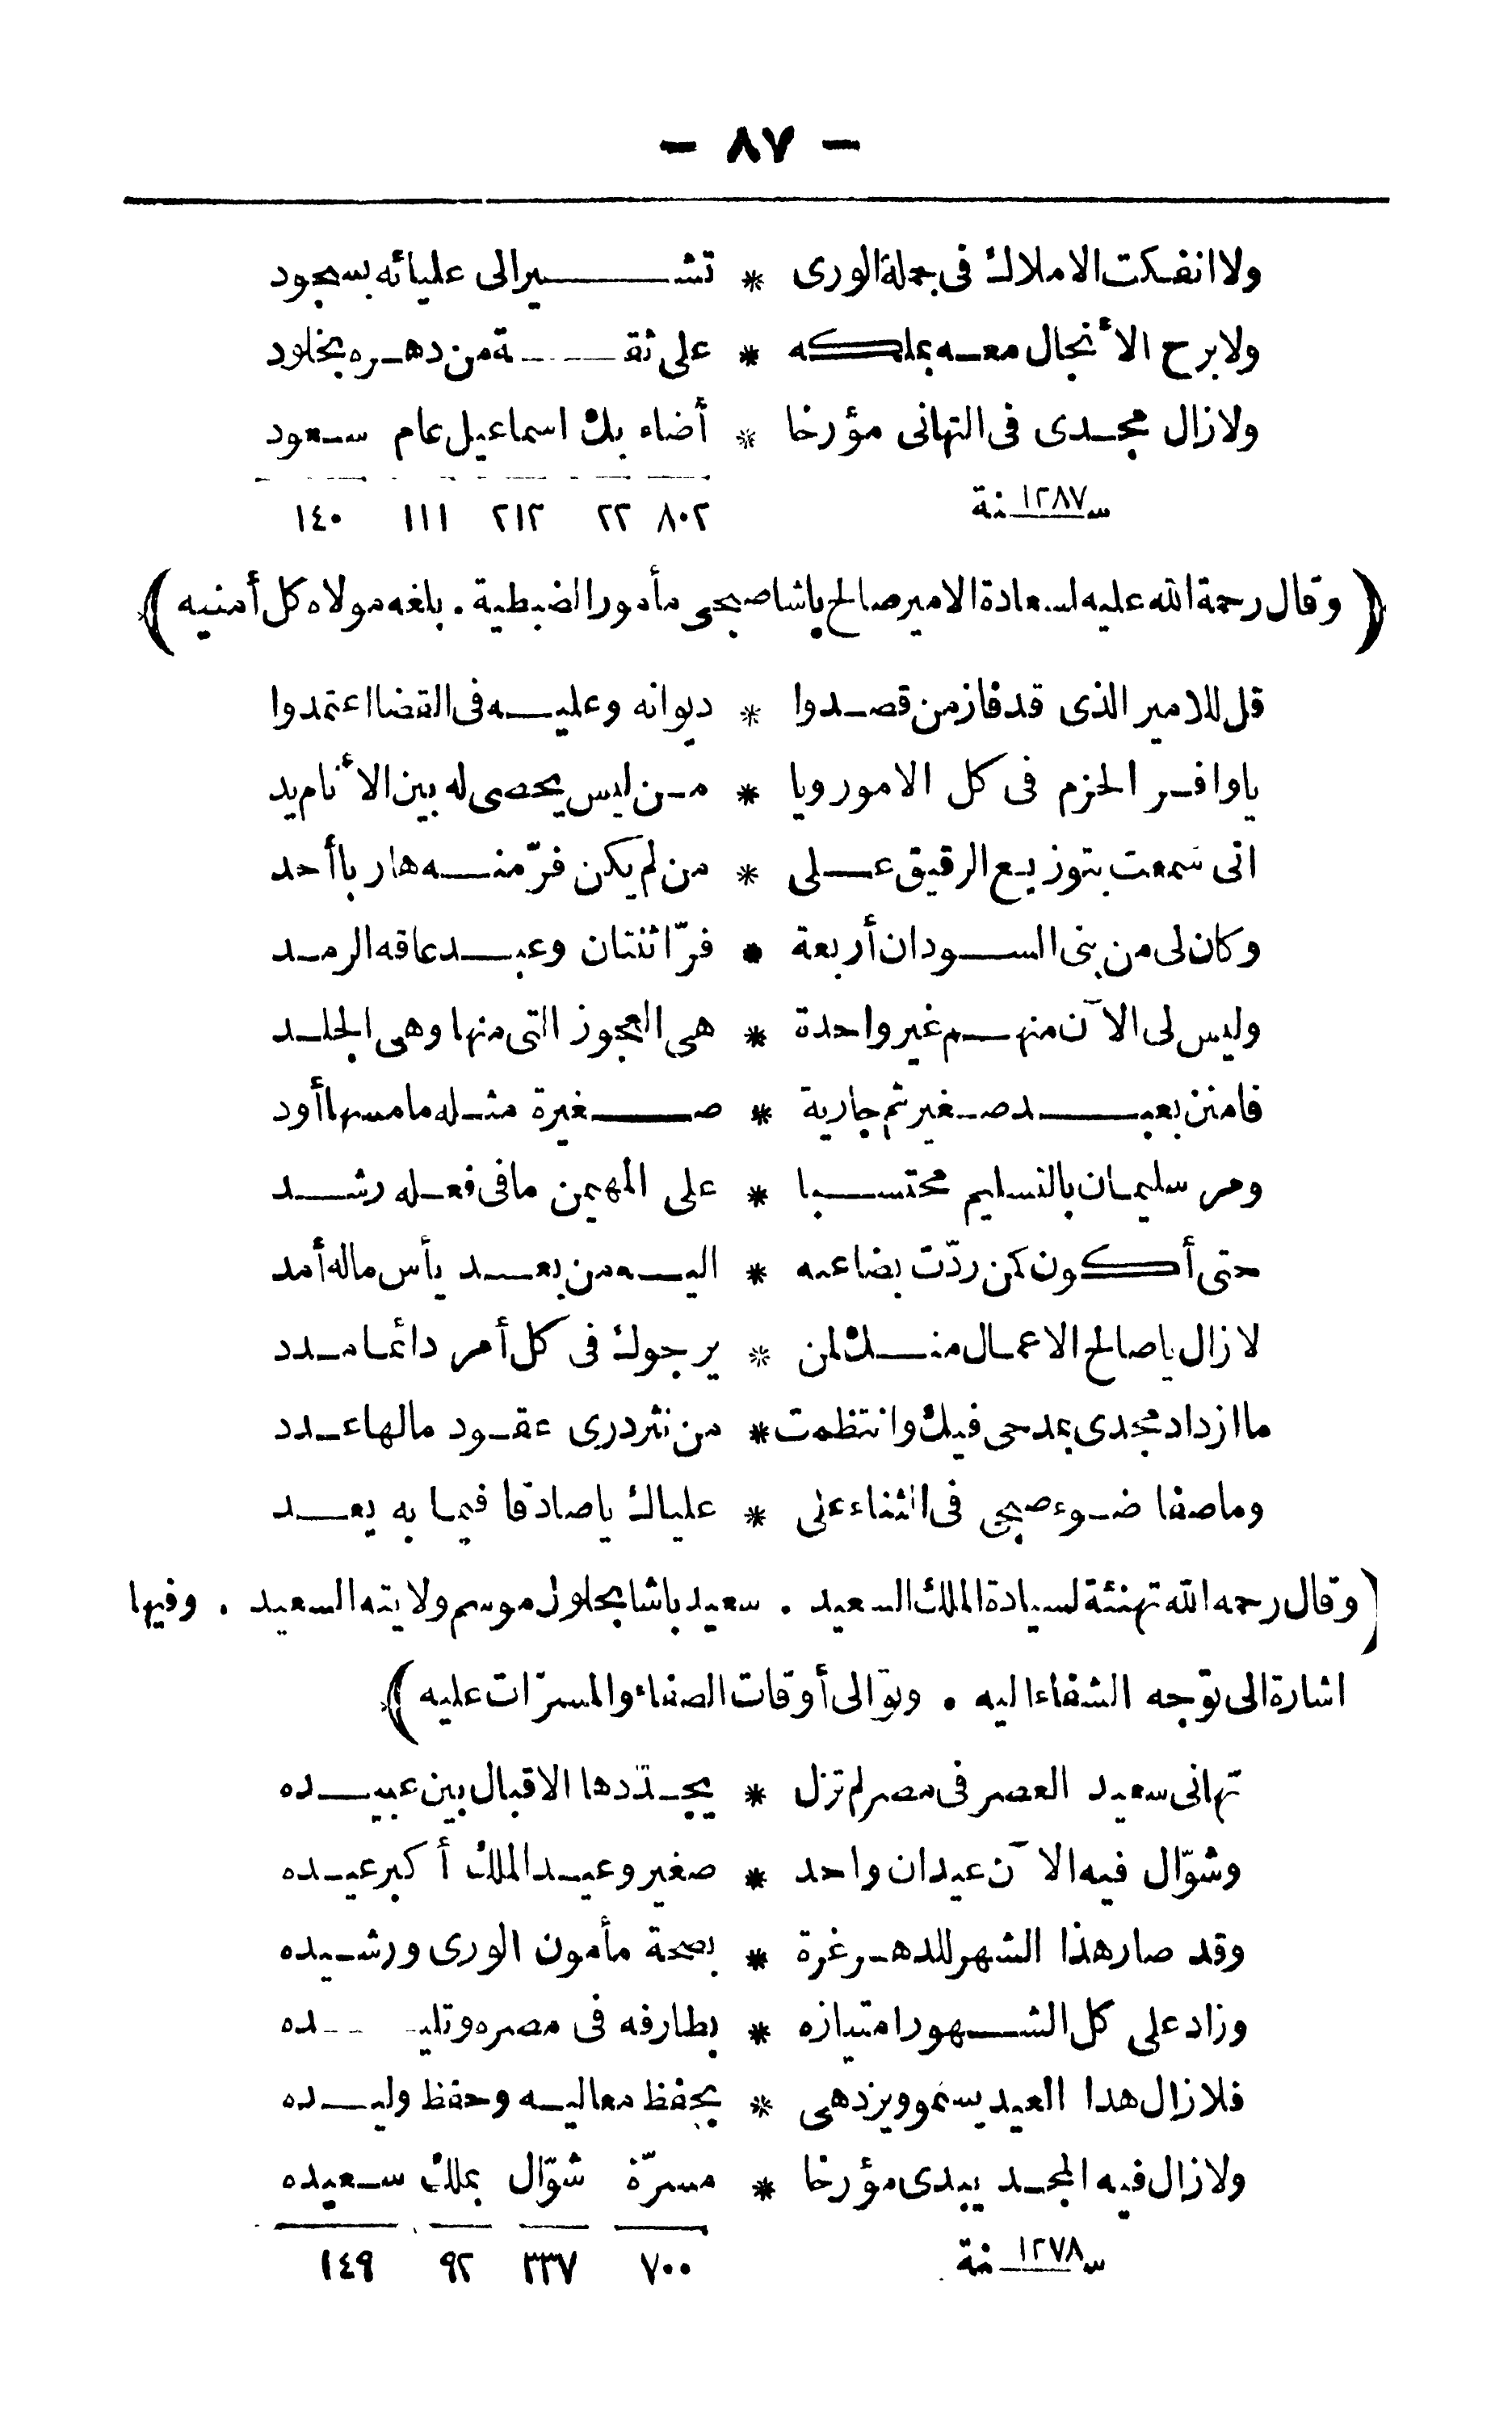 - ٨٧ -
ولا انفكت الاملاك فى جملة الورى * تشير الى عليائه بسجود
ولا برح الأنجال معه بملكه * على ثقة من دهره بخلود
ولا زال مجدى فى التهانى مؤرخا * أضاء بك اسماعيل عام سعود
سنة ١٢٨٧ ٨٠٢ ٢٢ ٢١٢ ١١١ ١٤٠
(وقال رحمة الله عليه لسعادة الامير صالح باشا صبحى مأمور الضبطية . بلغه مولاه كل أمنيه)
قل للامير الذى قد فاز من قصدوا * ديوانه وعليه فى القضا اعتمدوا
يا وافر الحزم فى كل الامور ويا * من ليس يحصى له بين الأنام يد
انى سمعت بتوزيع الرقيق على * من لم يكن فرّ منه هاربا أحد
وكان لى من بنى السودان أربعة * فرّ اثنتان وعبد عاقه الرمد
وليس لى الآن منهم غير واحدة * هى العجوز التى منها وهى الجلد
فامنن بعبد صغير ثم جارية * صغيرة مثله ما مسها أود
ومر سليمان بالتسليم محتسبا * على المهيمن ما فى فعله رشد
حتى أكون كمن ردّت بضاعته * اليه من بعد يأس ماله أمد
لا زال يا صالح الاعمال منك لمن * يرجوك فى كل أمر دائما مدد
ما ازداد مجدى بمدحى فيك وانتظمت * من نثر درى عقود مالها عدد
وما صفا ضوء صبحى فى الثناء على * علياك يا صادقا فيما به يعد
(وقال رحمه الله تهنئة لسيادة الملك السعيد . سعيد باشا بحلول موسم ولايته السعيد . وفيها
اشارة الى توجه الشفاء اليه . وتوالى أوقات الصفاء والمسرّات عليه)
تهانى سعيد العصر فى مصر لم تزل * يجدّدها الاقبال بين عبيده
وشوّال فيه الآن عيدان واحد * صغير وعيد الملك أكبر عيده
وقد صار هذا الشهر للدهر غرة * بصحة مأمون الورى ورشيده
وزاد على كل الشهور امتيازه * بطارفه فى مصره وتليده
فلا زال هذا العيد يسمو ويزدهى * بحفظ معاليه وحفظ وليده
ولا زال فيه المجد يبدى مؤرخا * مسرّة شوّال بملك سعيده
سنة ١٢٧٨ ٧٠٠ ٣٣٧ ٩٢ ١٤٩